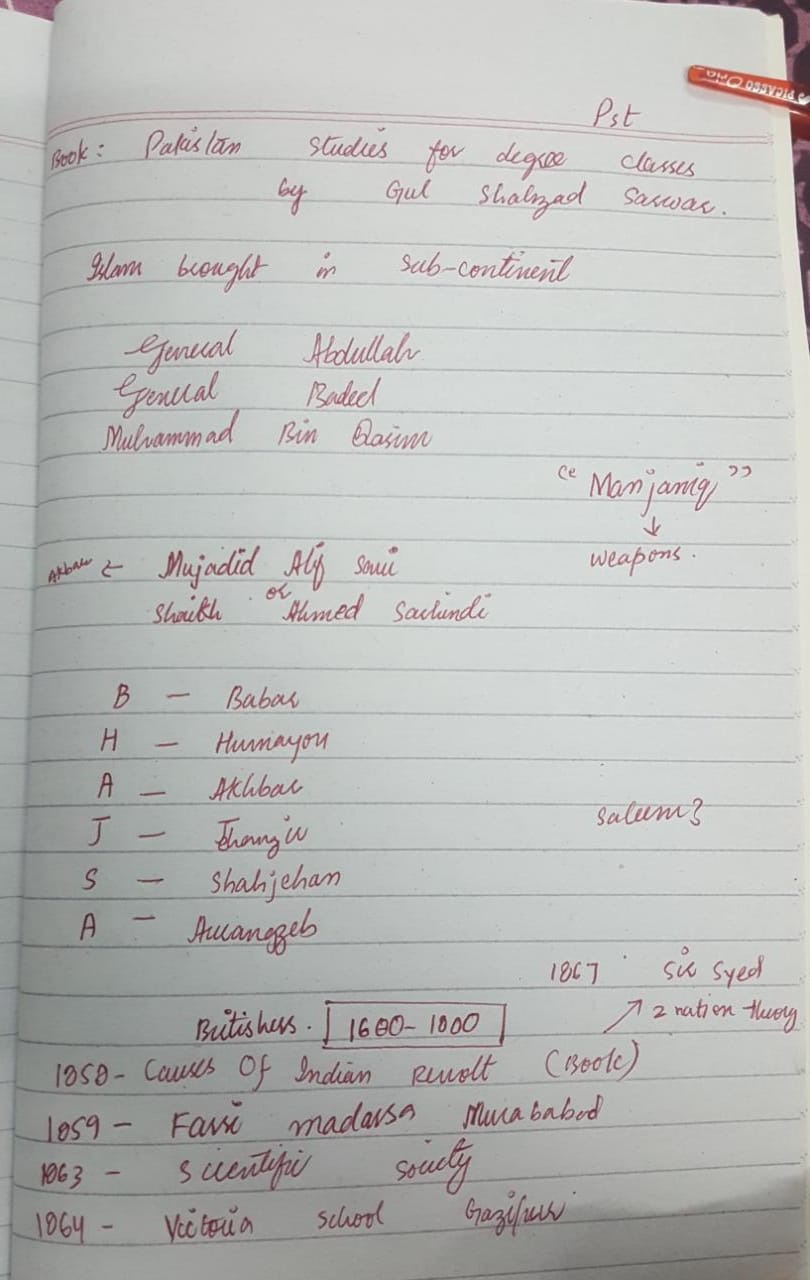 PICASSO
Pst
Book: Pakistan studies for degree classes
by Gul Shahzad Sarwar.
Islam brought in sub-continent
General Abdullah
General Badeel
Muhammad Bin Qasim
"Manjaniq"
↓
weapons.
Akbar ← Mujadid Alif Sani
or
Shaikh Ahmed Sarhindi
B - Babar
H - Humayou
A - Akhbar
Saleem
J - Jhangir
S - Shahjehan
A - Aurangzeb
1867 Sir Syed
Britishers. 1600-1800 ↗ 2 nation theory
1858 - Causes Of Indian Revolt (Book)
1859 - Farsi madarsa Murababad
1863 - Scientific Society
1864 - Victoria School Gazipur